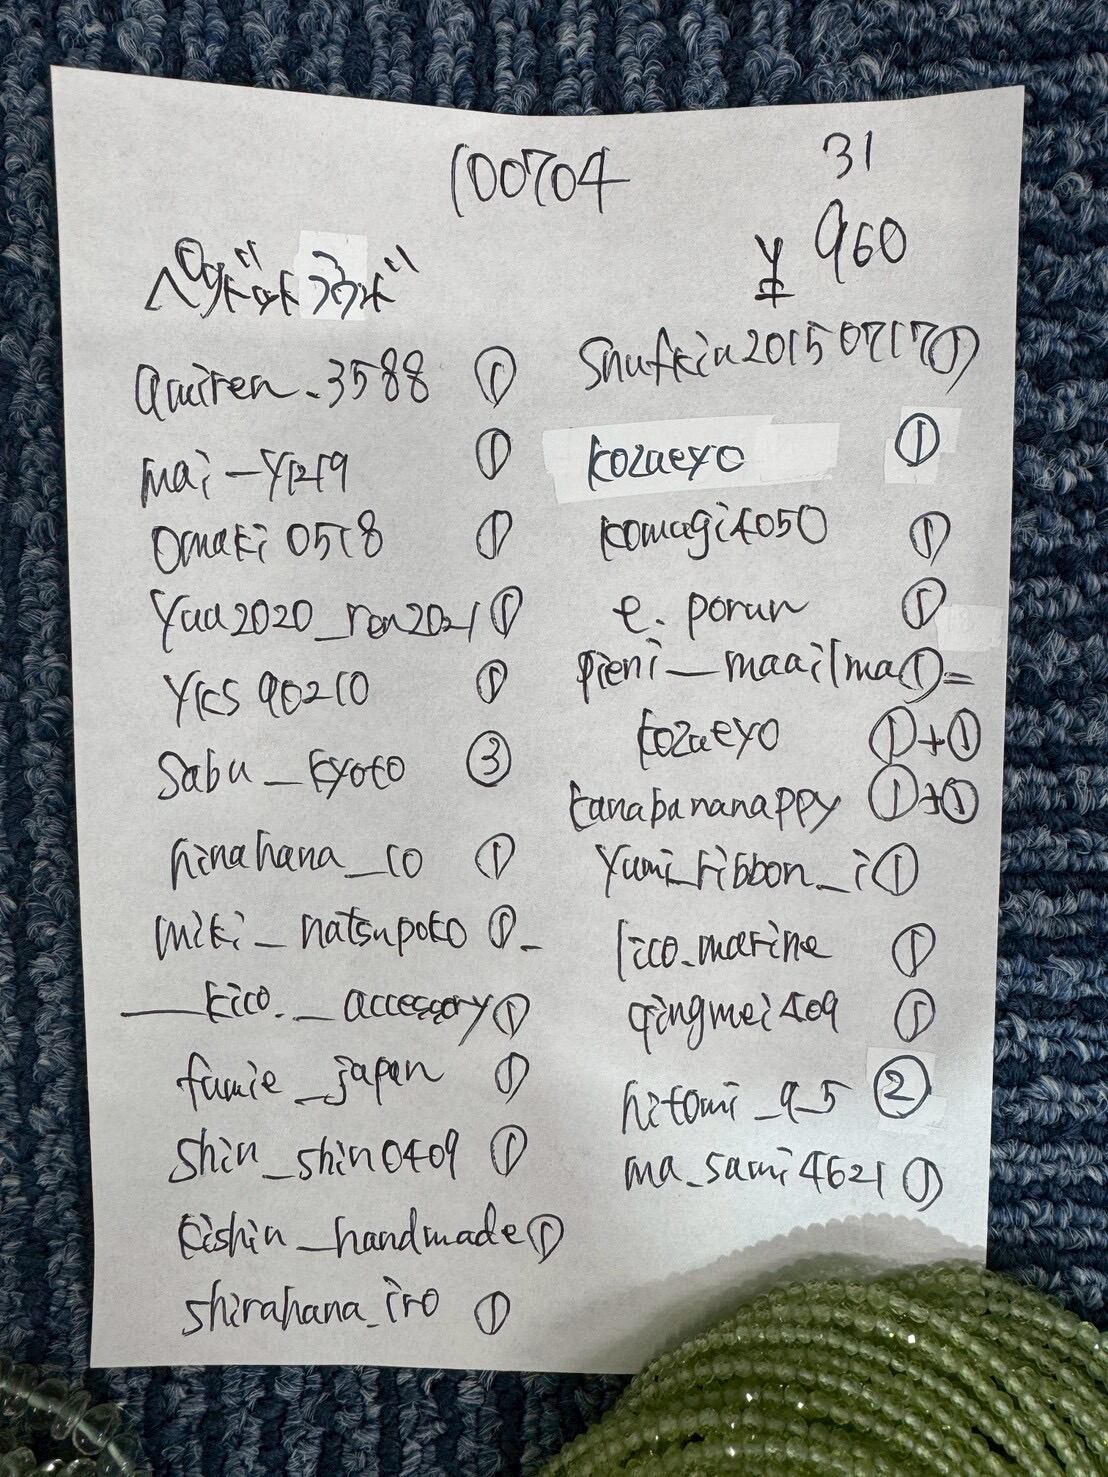 100704
31
¥ 960
amiren_3588 ①
mai_y1219 ①
omaki0518 ①
yaa2020_ren2021 ①
yks90210 ①
sabu_kyoto ③
hinahana_co ①
miki_natsupoko ①_
__kico._accessory ①
fumie_japan ①
shin_shin0409 ①
kishin_handmade ①
shirahana_iro ①
Snufkin20150717 ①
kozueyo ①
komagi4050 ①
e.porun ①
pieni_maailma ① =
kozueyo ①+①
tanabananappy ①+①
yumi_ribbon_i ①
lico.marine ①
qingmei409 ①
hitomi_9_5 ②
ma_sami4621 ①